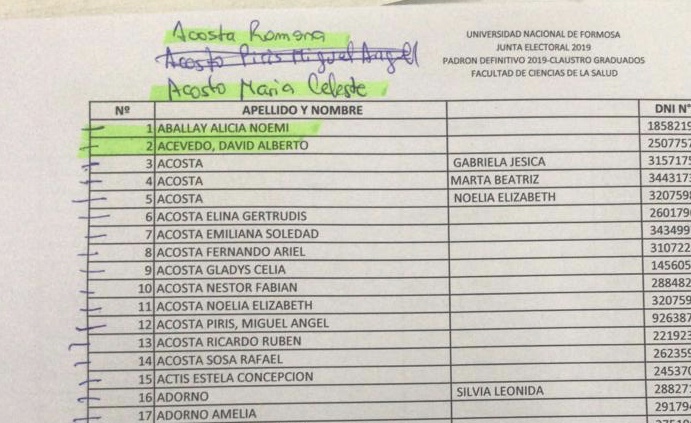 Acosta Romona
Acosta Piris Miguel Angel
Acosta Maria Celeste
UNIVERSIDAD NACIONAL DE FORMOSA
JUNTA ELECTORAL 2019
PADRON DEFINITIVO 2019-CLAUSTRO GRADUADOS
FACULTAD DE CIENCIAS DE LA SALUD
Nº APELLIDO Y NOMBRE DNI N°
1 ABALLAY ALICIA NOEMI 1858219
2 ACEVEDO, DAVID ALBERTO 2507757
3 ACOSTA GABRIELA JESICA 3157175
4 ACOSTA MARTA BEATRIZ 3443173
5 ACOSTA NOELIA ELIZABETH 3207598
6 ACOSTA ELINA GERTRUDIS 260179
7 ACOSTA EMILIANA SOLEDAD 343499
8 ACOSTA FERNANDO ARIEL 310722
9 ACOSTA GLADYS CELIA 145605
10 ACOSTA NESTOR FABIAN 288482
11 ACOSTA NOELIA ELIZABETH 320759
12 ACOSTA PIRIS, MIGUEL ANGEL 926387
13 ACOSTA RICARDO RUBEN 221923
14 ACOSTA SOSA RAFAEL 262359
15 ACTIS ESTELA CONCEPCION 245370
16 ADORNO SILVIA LEONIDA 28827
17 ADORNO AMELIA 29179